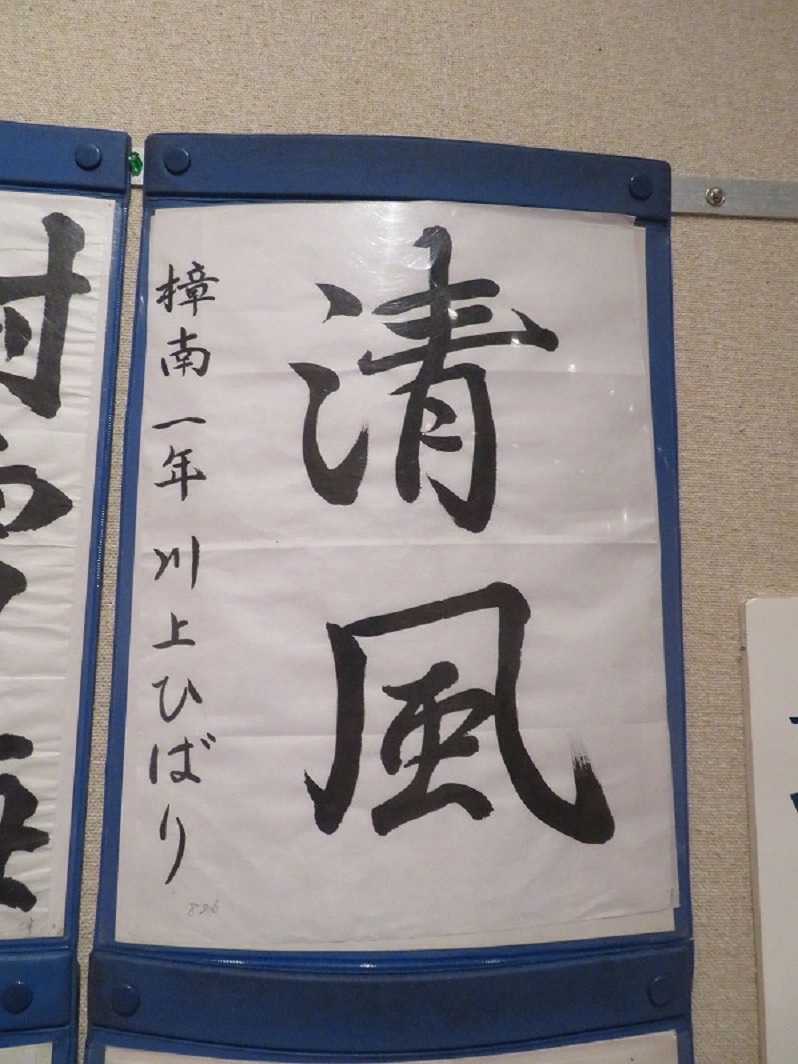 清風
樟南 一年 川上ひばり
826